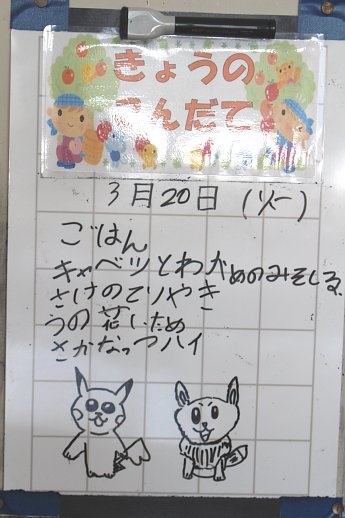 きょうの
こんだて
3月20日 (火)
ごはん
キャベツとわかめのみそしる
さけのてりやき
うの花いため
さかなっつハイ